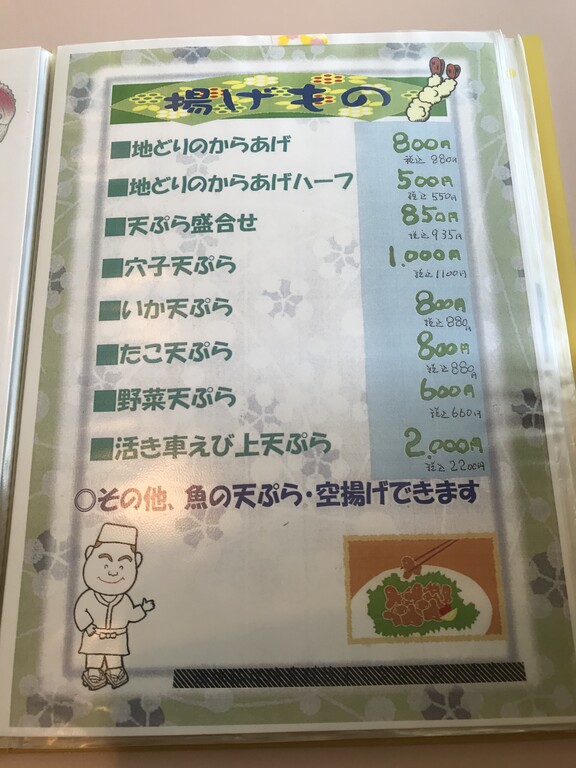 揚げもの
■地どりのからあげ 800円
税込 880円
■地どりのからあげハーフ 500円
税込 550円
■天ぷら盛合せ 850円
税込 935円
■穴子天ぷら 1,000円
税込 1100円
■いか天ぷら 800円
税込 880円
■たこ天ぷら 800円
税込 880円
■野菜天ぷら 600円
税込 660円
■活き車えび上天ぷら 2,000円
税込 2200円
◎その他、魚の天ぷら・空揚げできます